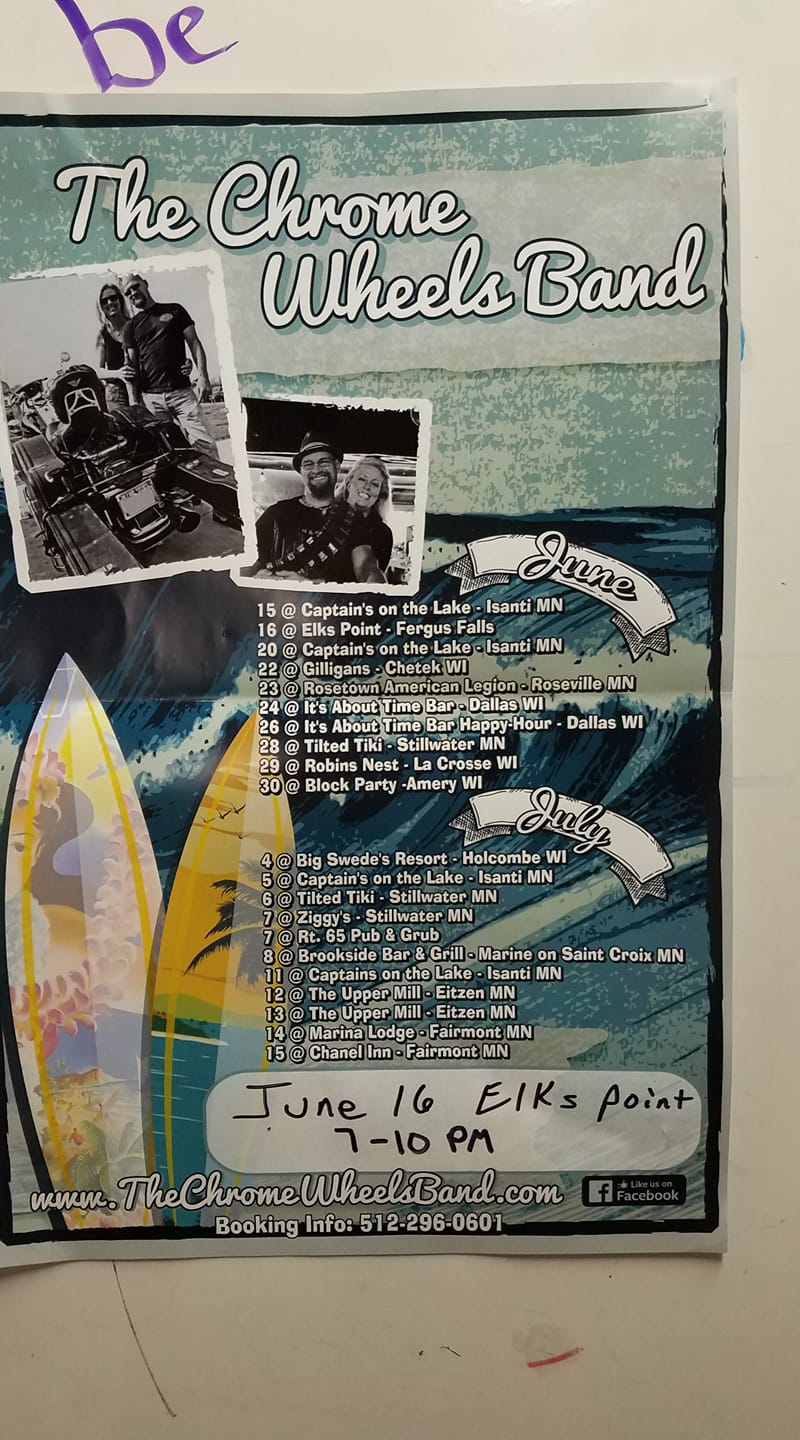 be
The Chrome
Wheels Band
June
15 @ Captain's on the Lake - Isanti MN
16 @ Elks Point - Fergus Falls
20 @ Captain's on the Lake - Isanti MN
22 @ Gilligans - Chetek WI
23 @ Rosetown American Legion - Roseville MN
24 @ It's About Time Bar - Dallas WI
26 @ It's About Time Bar Happy-Hour - Dallas WI
28 @ Tilted Tiki - Stillwater MN
29 @ Robins Nest - La Crosse WI
30 @ Block Party -Amery WI
July
4 @ Big Swede's Resort - Holcombe WI
5 @ Captain's on the Lake - Isanti MN
6 @ Tilted Tiki - Stillwater MN
7 @ Ziggy's - Stillwater MN
7 @ Rt. 65 Pub & Grub
8 @ Brookside Bar & Grill - Marine on Saint Croix MN
11 @ Captains on the Lake - Isanti MN
12 @ The Upper Mill - Eitzen MN
13 @ The Upper Mill - Eitzen MN
14 @ Marina Lodge - Fairmont MN
15 @ Chanel Inn - Fairmont MN
June 16 Elks point
7-10 PM
www.TheChromeWheelsBand.com
Like us on
Facebook
Booking Info: 512-296-0601